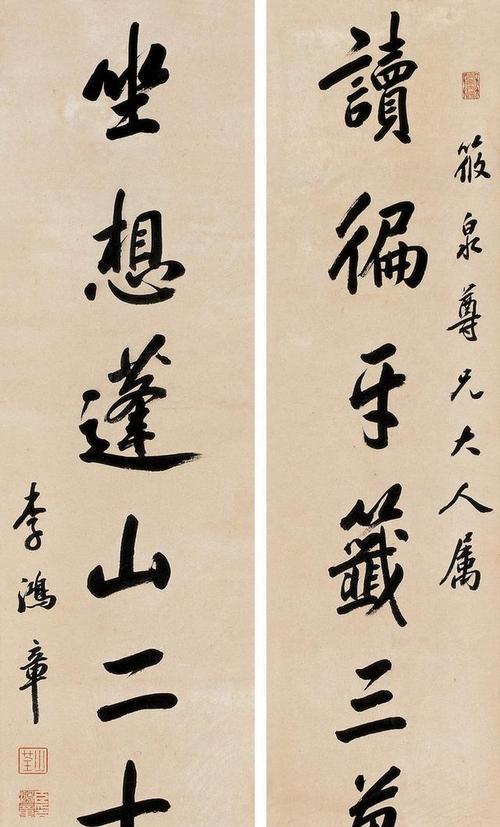 筱泉尊兄大人属
讀徧牙籤三
坐想蓬山二十
李鴻章